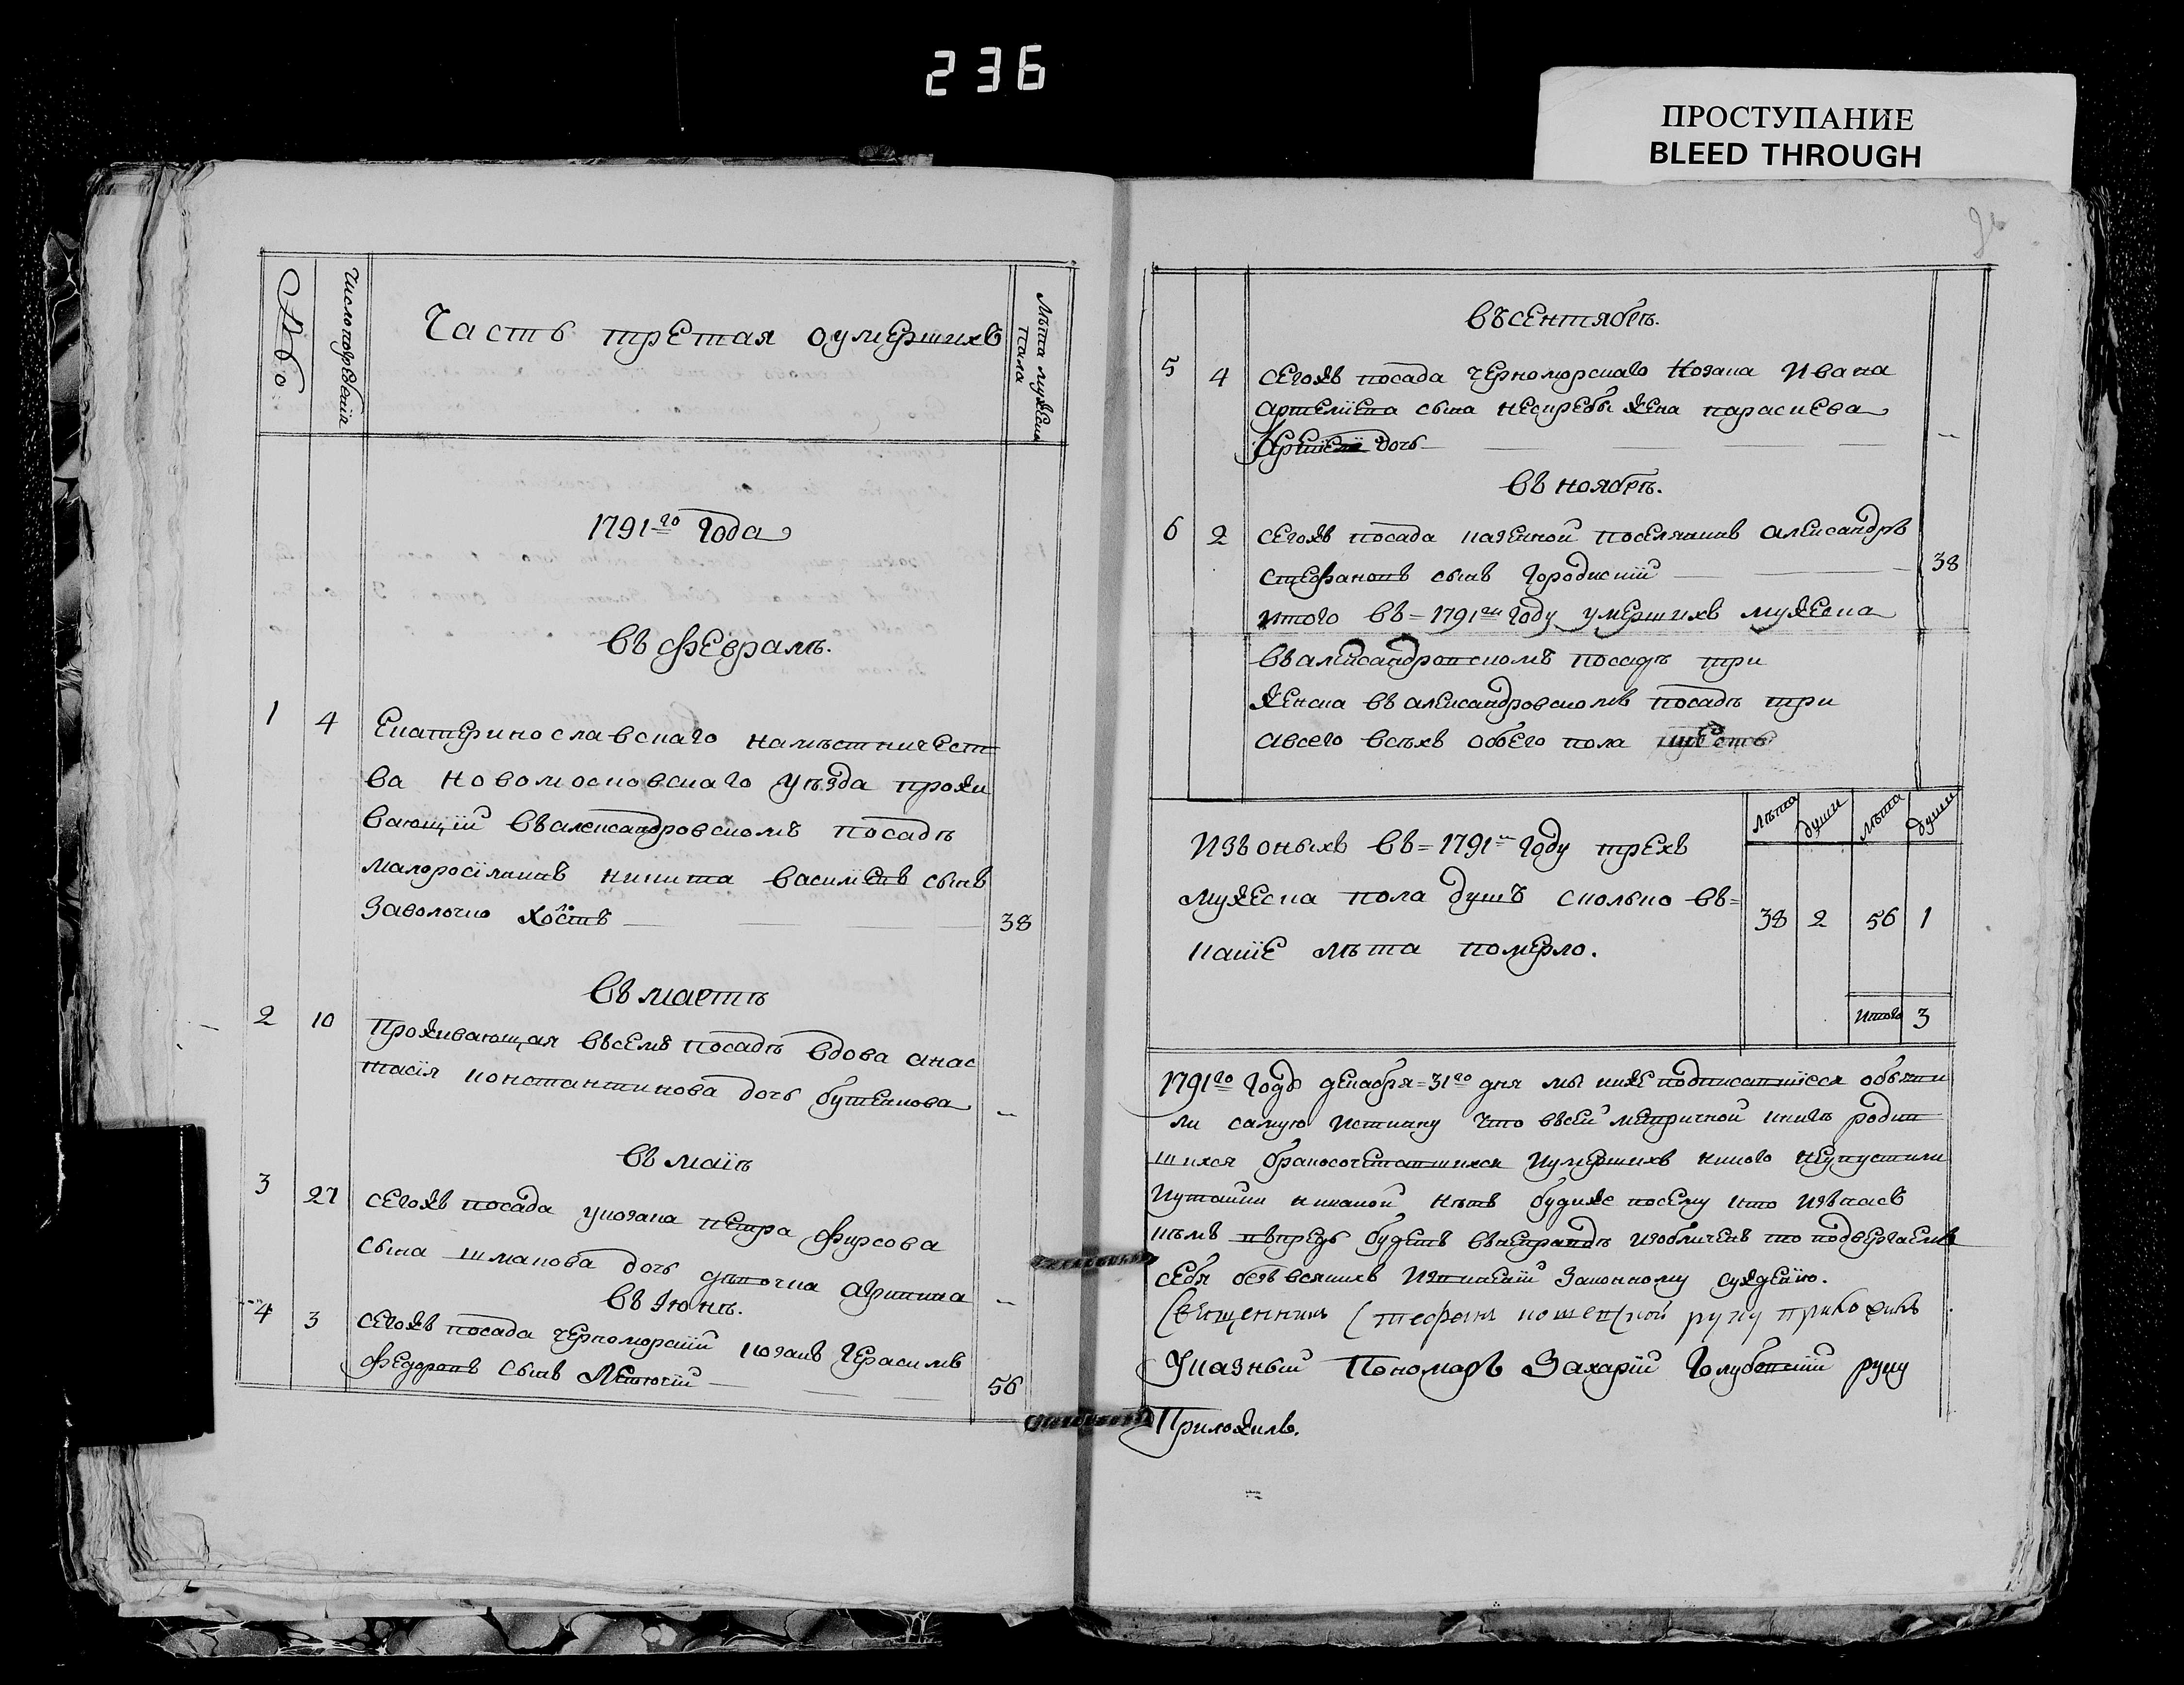 236
ПРОСТУПАНИЕ
BLEED THROUGH
Число погребенія
Часть третая оумершихъ
Лѣта мужеска
пола
1791го года
въ февралѣ.
1 4 Екатеринославскаго намѣстничест
ва новомосковскаго уѣзда прожи
вающій въ александровскомъ посадѣ
малоросіянинъ никита василіевъ сынъ
Заволочно хвостъ 38
въ мартѣ
2 10 Проживающая въсемъ посадѣ вдова анас
тасія константинова дочь бутенкова
въ маіѣ
3 27 сегожъ посада укозака петра фирсова
сына шмакова дочь дѣвочка
въ іюнѣ.
4 3 сегожъ посада черноморскій козакъ Герасимъ
федоровъ сынъ Летючій 56
въ сентябрѣ.
5 4 сегожъ посада черноморскаго козака Ивана
артеміева сына жена параскева
дочь
въ ноябрѣ.
6 2 сегожъ посада казенной поселянинъ александръ
стефановъ сынъ Городискій 38
итого въ=1791м году умершихъ мужеска
въ александровскомъ посадѣ три
женска въ александровскомъ посадѣ три
авсего всѣхъ обоего пола шесть
Лѣта души Лѣта души
Изъ оныхъ въ=1791м году трехъ
мужеска пола душъ сколько въ=
какіе лѣта померло.
38 2 56 1
итого 3
1791го Года декабря=31го дня мы нижеподписавшіеся объяви
ли самую истинну что въсей метричной книгѣ родив
шихся бракосочетавшихся иумершихъ никого неупустили
иутайки никакой нѣтъ будиже посему кто изънасъ
кѣмъ въпредь будетъ въ неправдѣ изобличенъ то подвергаемъ
себя безъ всякихъ законному сужденію.
Священникъ Стефанъ руку приложилъ
Указный Пономарь Захарій Голубовскій руку
Приложилъ.